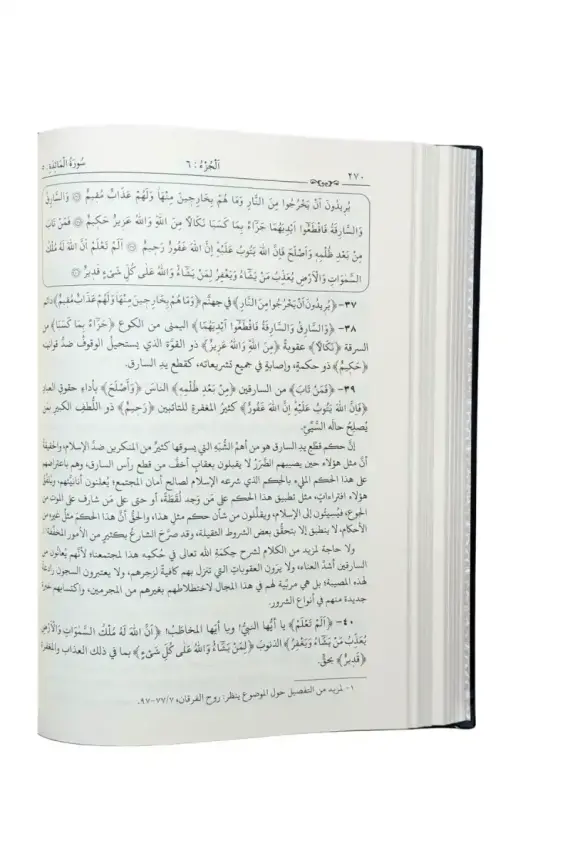 ٢٧٠ اَلْجُزْءُ : ٦ سُورَةُ الْمَائِدَةِ : ٥
يُرِيدُونَ اَنْ يَخْرُجُوا مِنَ النَّارِ وَمَا هُمْ بِخَارِجِينَ مِنْهَا وَلَهُمْ عَذَابٌ مُقِيمٌ ۞ وَالسَّارِقُ
وَالسَّارِقَةُ فَاقْطَعُوا اَيْدِيَهُمَا جَزَاءً بِمَا كَسَبَا نَكَالًا مِنَ اللّٰهِ وَاللّٰهُ عَزِيزٌ حَكِيمٌ ۞ فَمَنْ تَابَ
مِنْ بَعْدِ ظُلْمِهِ وَاَصْلَحَ فَاِنَّ اللّٰهَ يَتُوبُ عَلَيْهِ اِنَّ اللّٰهَ غَفُورٌ رَحِيمٌ ۞ اَلَمْ تَعْلَمْ اَنَّ اللّٰهَ لَهُ مُلْكُ
السَّمٰوَاتِ وَالْاَرْضِ يُعَذِّبُ مَنْ يَشَاءُ وَيَغْفِرُ لِمَنْ يَشَاءُ وَاللّٰهُ عَلٰى كُلِّ شَيْءٍ قَدِيرٌ ۞
٣٧- ﴿يُرِيدُونَ اَنْ يَخْرُجُوا مِنَ النَّارِ﴾ في جهنَّم ﴿وَمَا هُمْ بِخَارِجِينَ مِنْهَا وَلَهُمْ عَذَابٌ مُقِيمٌ﴾ دائم
٣٨- ﴿وَالسَّارِقُ وَالسَّارِقَةُ فَاقْطَعُوا اَيْدِيَهُمَا﴾ اليمنى من الكوع ﴿جَزَاءً بِمَا كَسَبَا﴾ من
السرقة ﴿نَكَالًا﴾ عقوبةً ﴿مِنَ اللّٰهِ وَاللّٰهُ عَزِيزٌ﴾ ذو القوّة الذي يستحيلُ الوقوفُ ضدَّ قوانينه
﴿حَكِيمٌ﴾ ذو حكمةٍ، وإصابةٍ في جميع تشريعاته، كقطع يدِ السارق.
٣٩- ﴿فَمَنْ تَابَ﴾ من السارقين ﴿مِنْ بَعْدِ ظُلْمِهِ﴾ الناسَ ﴿وَاَصْلَحَ﴾ بأداءِ حقوقِ العبادِ
﴿فَاِنَّ اللّٰهَ يَتُوبُ عَلَيْهِ اِنَّ اللّٰهَ غَفُورٌ﴾ كثيرُ المغفرةِ للتائبين ﴿رَحِيمٌ﴾ ذو اللُّطفِ الكبيرِ بمَن
يُصلِحُ حالَه السَّيِّئَ.
إنَّ حكم قطع يدِ السارق هو من أهمِّ الشُّبَهِ التي يسوقها كثيرٌ من المنكرين ضدَّ الإسلام، والحقيقةُ
أنَّ مثل هؤلاء حين يصيبهم الضَّررُ لا يقبلون بعقابٍ أخفَّ من قطع رأس السارق، وهم باعتراضهم
على هذا الحكم المليء بالحِكم الذي شرعه الإسلام لصالح أمان المجتمع؛ يُعلنون أنانيَّتهم، ويُلفِّق
هؤلاء افتراءاتٍ، مثل تطبيق هذا الحكم على مَن وَجد لُقَطَةً، أو حتى على مَن شارف على الموت من
الجوع، فيُسيئون إلى الإسلام، ويقلِّلون من شأن حكمٍ مثل هذا، والحقُّ أنَّ هذا الحكمَ مثلُ غيره من
الأحكام، لا ينطبق إلا بتحقُّق بعض الشروط الثقيلة، وقد صرَّح الشارعُ بكثيرٍ من الأمور المخفِّفة
ولا حاجة لمزيد من الكلام لشرح حِكمةِ الله تعالى في حُكمِه هذا لمجتمعنا؛ لأنّهم يُعانون من
السارقين أشدَّ العناء، ولا يرَون العقوباتِ التي تنزل بهم كافيةً لزجرهم، ولا يعتبرون السجون رادعةً
لهذه المصيبة؛ بل هي مربّيةٌ لهم في هذا المجال لاختلاطهم بغيرهم من المجرمين، واكتسابهم خبرةً
جديدة منهم في أنواع الشرور.
٤٠- ﴿اَلَمْ تَعْلَمْ﴾ يا أيُّها النبيُّ! ويا أيّها المخاطَبُ! ﴿اَنَّ اللّٰهَ لَهُ مُلْكُ السَّمٰوَاتِ وَالْاَرْضِ
يُعَذِّبُ مَنْ يَشَاءُ وَيَغْفِرُ﴾ الذنوبَ ﴿لِمَنْ يَشَاءُ وَاللّٰهُ عَلٰى كُلِّ شَيْءٍ﴾ بما في ذلك العذاب والمغفرة
﴿قَدِيرٌ﴾ بحقٍّ.
١- لمزيد من التفصيل حول الموضوع ينظر: روح الفرقان، ٧/ ٧٧-٩٧.